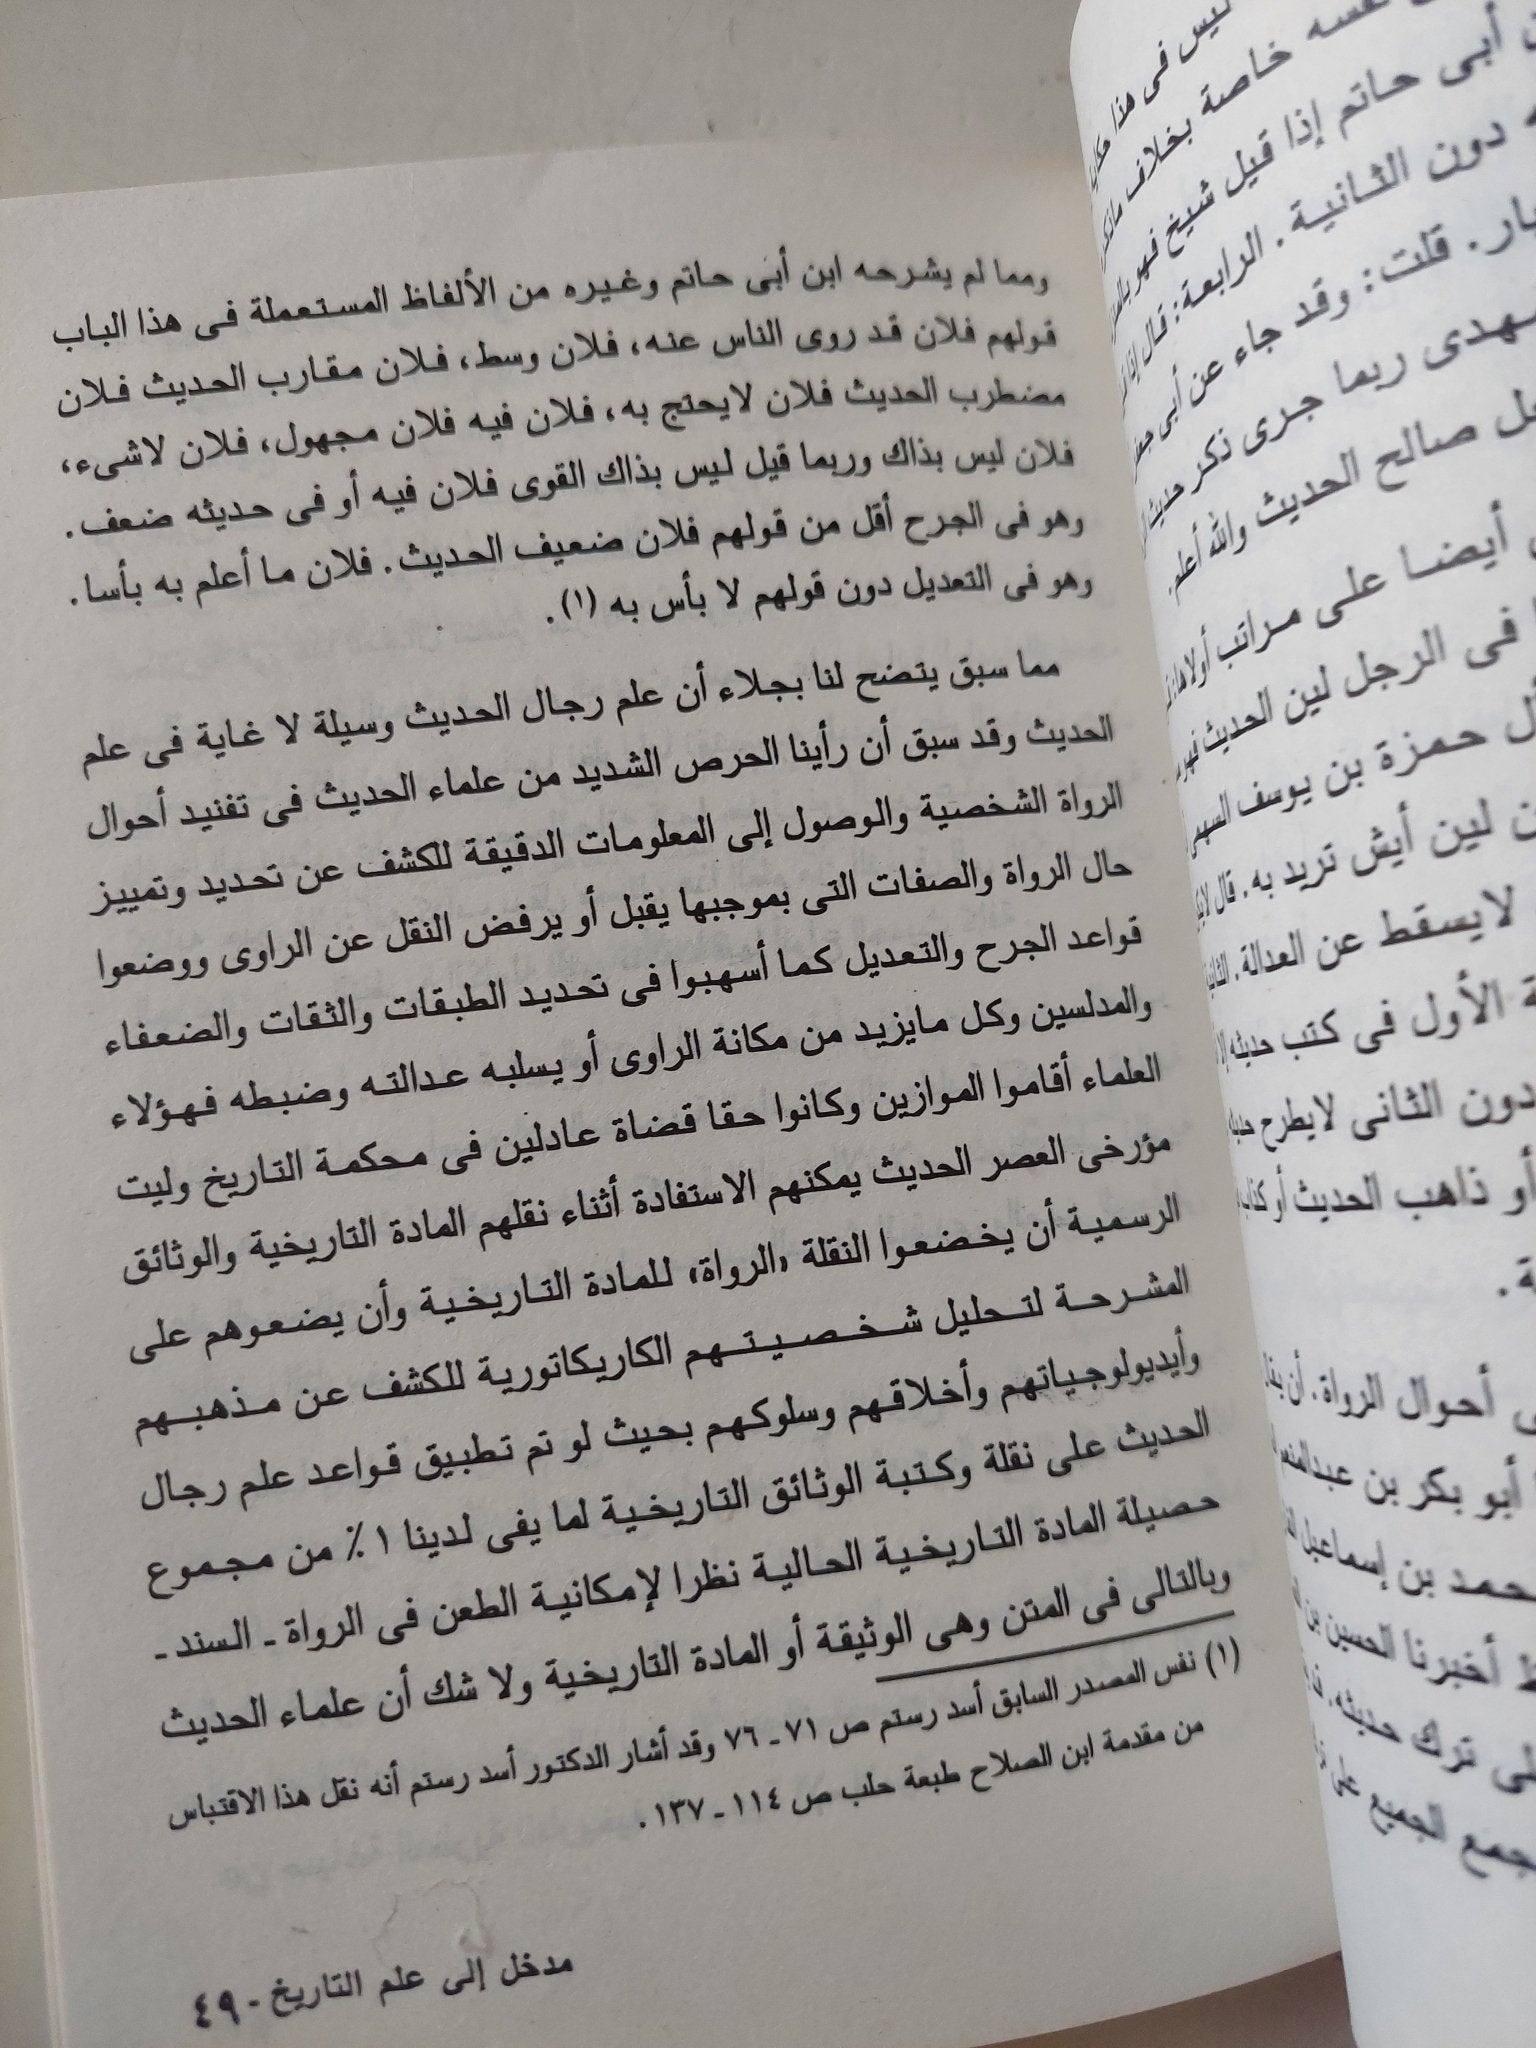 ومما لم يشرحه ابن أبى حاتم وغيره من الألفاظ المستعملة فى هذا الباب
قولهم فلان قد روى الناس عنه، فلان وسط، فلان مقارب الحديث فلان
مضطرب الحديث فلان لايحتج به، فلان فيه فلان مجهول، فلان لاشىء،
فلان ليس بذاك وربما قيل ليس بذاك القوى فلان فيه أو فى حديثه ضعف.
وهو فى الجرح أقل من قولهم فلان ضعيف الحديث. فلان ما أعلم به بأسا.
وهو فى التعديل دون قولهم لا بأس به (١).
مما سبق يتضح لنا بجلاء أن علم رجال الحديث وسيلة لا غاية فى علم
الحديث وقد سبق أن رأينا الحرص الشديد من علماء الحديث فى تفنيد أحوال
الرواة الشخصية والوصول إلى المعلومات الدقيقة للكشف عن تحديد وتمييز
حال الرواة والصفات التى بموجبها يقبل أو يرفض النقل عن الراوى ووضعوا
قواعد الجرح والتعديل كما أسهبوا فى تحديد الطبقات والثقات والضعفاء
والمدلسين وكل مايزيد من مكانة الراوى أو يسلبه عدالته وضبطه فهؤلاء
العلماء أقاموا الموازين وكانوا حقا قضاة عادلين فى محكمة التاريخ وليت
مؤرخى العصر الحديث يمكنهم الاستفادة أثناء نقلهم المادة التاريخية والوثائق
الرسمية أن يخضعوا النقلة «الرواة» للمادة التاريخية وأن يضعوهم على
المشرحة لتحليل شخصيتهم الكاريكاتورية للكشف عن مذهبهم
وأيديولوجياتهم وأخلاقهم وسلوكهم بحيث لو تم تطبيق قواعد علم رجال
الحديث على نقلة وكتبة الوثائق التاريخية لما يفى لدينا ١٪ من مجموع
حصيلة المادة التاريخية الحالية نظرا لإمكانية الطعن فى الرواة ـ السند ـ
وبالتالى فى المتن وهى الوثيقة أو المادة التاريخية ولا شك أن علماء الحديث
(١) نفس المصدر السابق أسد رستم ص ٧١ ـ ٧٦ وقد أشار الدكتور أسد رستم أنه نقل هذا الاقتباس
من مقدمة ابن الصلاح طبعة حلب ص ١١٤ ـ ١٣٧.
مدخل إلى علم التاريخ - ٤٩
ليس فى هذا
خاصة بخلاف
أبى حاتم إذا قيل شيخ فهو
دون الثانية. الرابعة: قال
قلت: وقد جاء عن أبى
ربما جرى ذكر حديث
صالح الحديث والله أعلم.
أيضا على مراتب أولاها
فى الرجل لين الحديث
حمزة بن يوسف السهمى
لين أيش تريد به. قال
لايسقط عن العدالة.
الأول فى كتب حديثه
دون الثانى لايطرح
أو ذاهب الحديث أو
أحوال الرواة. أن
أبو بكر بن عبدالمنعم
بن إسماعيل
أخبرنا الحسين بن
ترك حديثه.
الجميع على